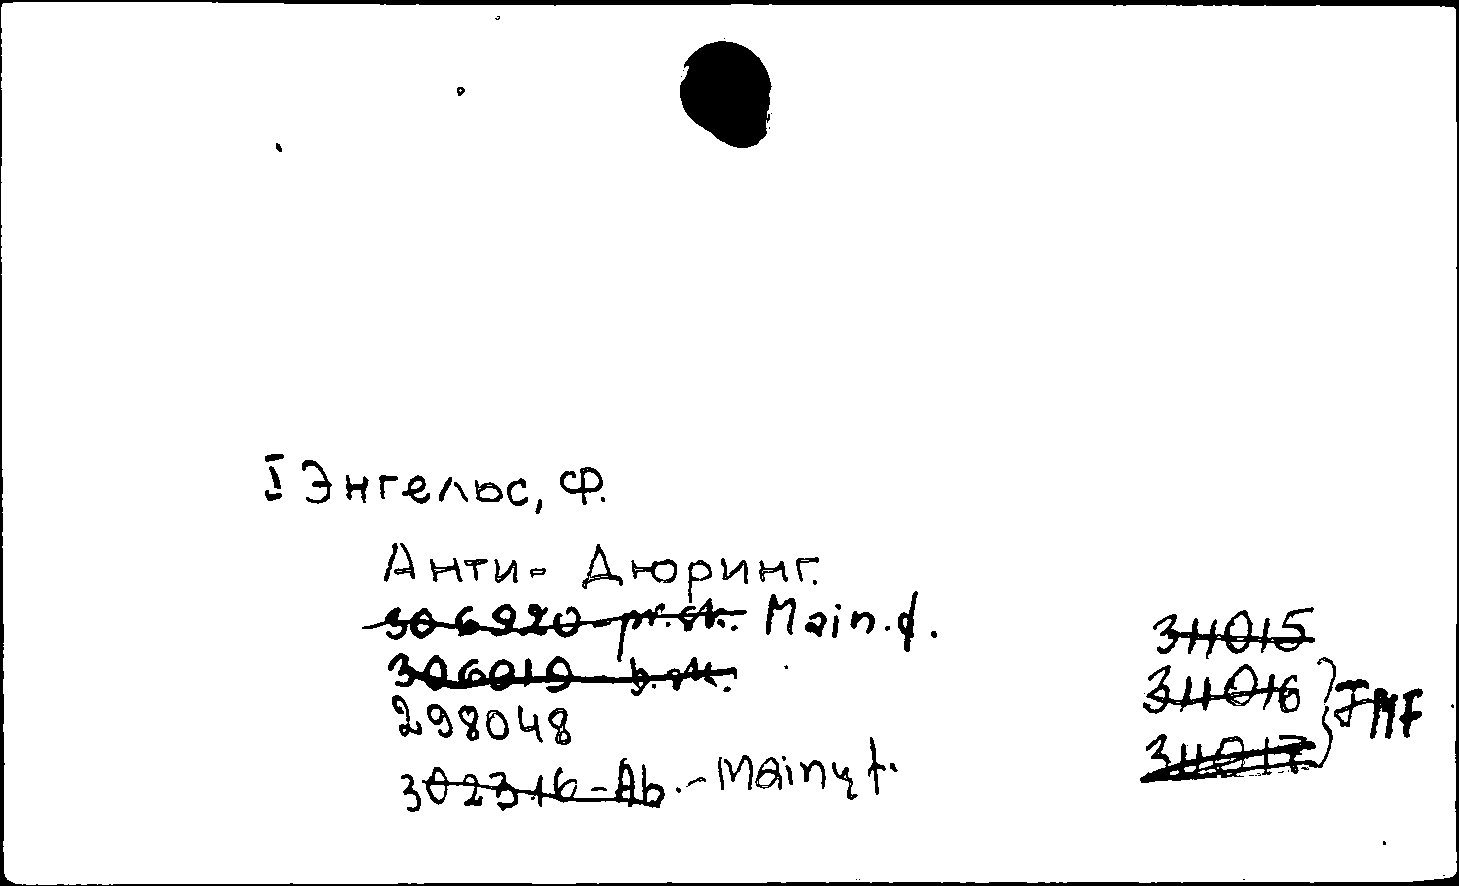 I Энгельс, Ф.
Анти- Дюринг.
306920-pr.sk. Main.f.
306019-b.sk.
298048
302316-Ab.-Mainų f.
311015
311016
311017
FMF